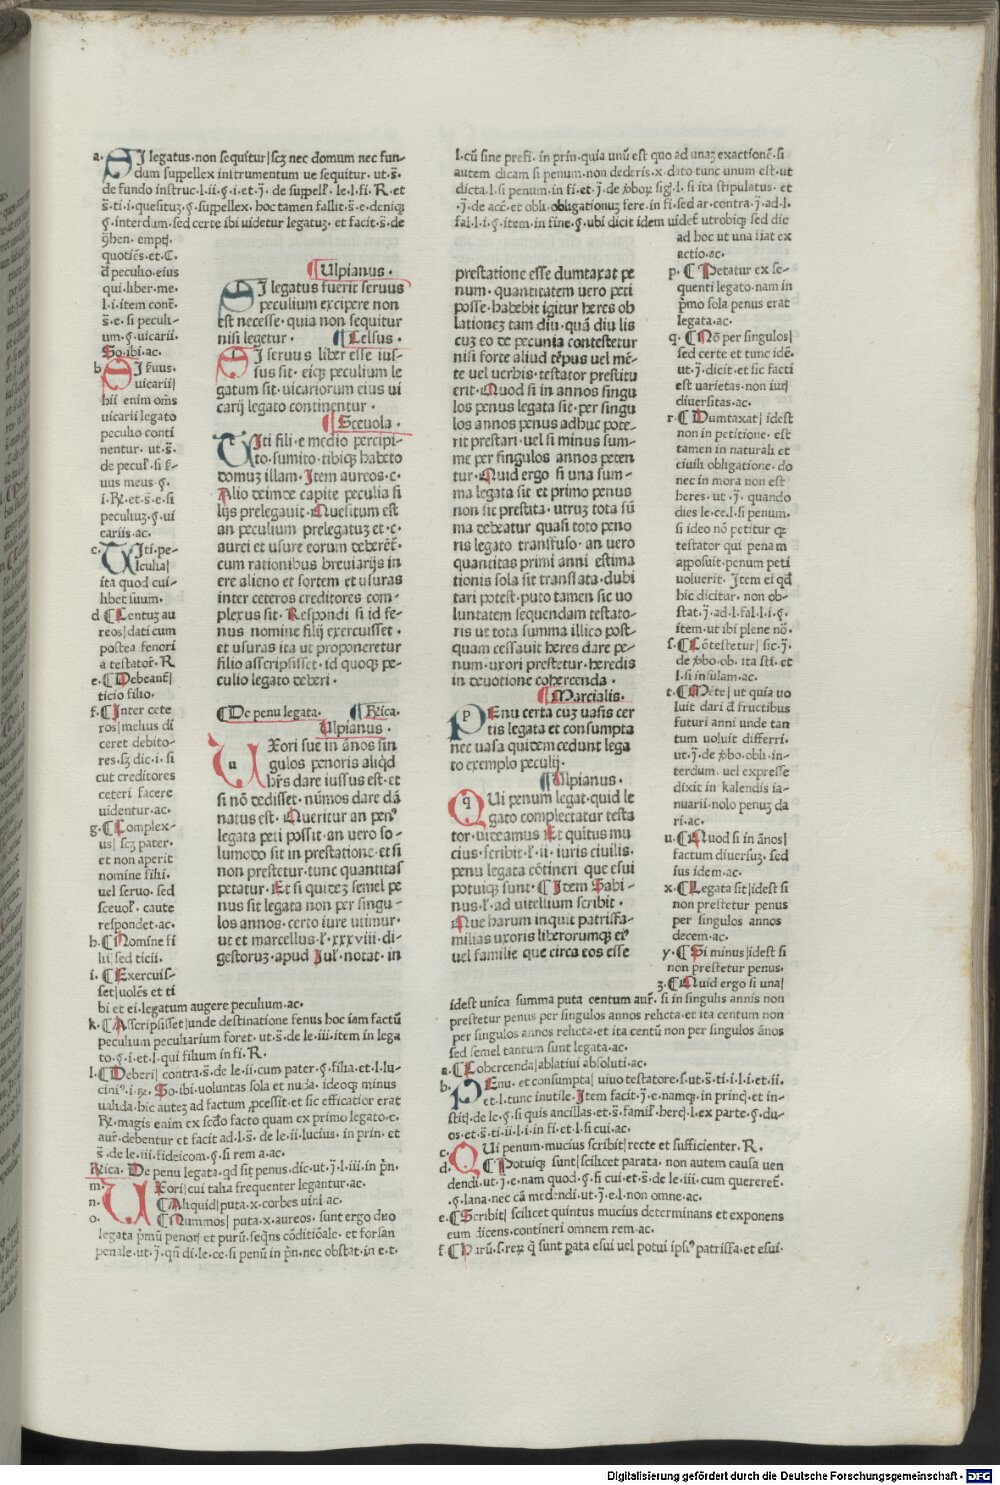 a. SI legatus. non sequitur| scꝫ nec domum nec fun-
dum suppellex instrumentum ue sequitur. ut. s̄.
de fundo instruc. l. ii. §. i. et. j̄. de suppell̓. le. l. fi. R. et
s̄. ti. i. quesituꝫ. §. suppellex. hoc tamen fallit. s̄. e. deniqꝫ
§. interdum. sed certe ibi uidetur legatuꝫ. et facit. s̄. de
ꝯhen. emptj̄.
quotiēs. et. C.
đ peculio. eius
qui. liber. me.
l. i. item cont̄.
s̄. e. si peculi-
um. §. uicarii.
So. ibi. ac.
b SI s̓uus.
uicarii|
hii enim om̄s
uicarii legato
peculio conti
nentur. ut. s̄.
de pecul̓. si s̓-
uus meus §.
i. R̓. et. s̄. e. si
peculiuꝫ. §. ui
cariis. ac.
c. UIti. pe-
culia|
ita quod cui-
libet suum.
d ¶ Centuꝫ au
reos| dati cum
postea fenori
a testator̓. R
e. ¶ Debeant̄|
ticio filio.
f. ¶ Inter cete
ros| melius di
ceret debito-
res. sꝫ dic. i. si
cut creditores
ceteri facere
uidentur. ac.
g. ¶ Complex-
us| scꝫ pater.
et non aperit
nomine filii.
uel seruo. sed
sceuol̓. caute
respondet. ac.
h. ¶ Nomine fi
lii| sed ticii.
i. ¶ Exercuis-
set| uolēs et ti
bi et ei. legatum augere peculium. ac.
k. ¶ Asscripsisset| unde destinatione fenus hoc iam factū
peculium peculiarium foret. ut. s̄. de le. iii. item in lega
to. §. i. et. l. qui filium in fi. R.
l. ¶ Deberi| contra. s̄. de le. ii. cum pater. §. filia. et. l. lu-
So. ibi. uoluntas sola et nuda. ideoqꝫ minus
ualida. hic autez ad factum ꝓcessit. et sic efficatior erat
R̓. magis enim ex scdo facto quam ex primo legato. c.
aur̓. debentur et facit ad. l. s̄. de le. ii. lucius. in prin. et
s̄. de le. iii. fideicom. §. si rem a. ac.
Rica. De penu legata. qd sit penus. dic. ut. j̄. l. iii. in pn̄.
m. UXori| cui talia frequenter legantur. ac.
n. ¶ Aliquid| puta. x. corbes uini. ac.
o. ¶ Nummos| puta. x. aureos. sunt ergo duo
legata pmū penor| et purū. seqns cōditiōale. et forsan
penale. ut. j̄. qn̄ di. le. ce. si penū in pn̄. nec obstat. in e. t.
¶ Ulpianus.
SI legatus fuerit seruus
peculium excipere non
est necesse. quia non sequitur
nisi legetur. ¶ Celsus.
SI seruus liber esse ius-
sus sit. eiqꝫ peculium le
gatum sit. uicariorum eius ui
carij legato continentur.
¶ Sceuola.
UIti fili. e medio percipi-
to. sumito. tibiqꝫ habeto
domuꝫ illam. Item aureos. c.
Alio deinde capite peculia fi
lijs prelegauit. Quesitum est
an peculium prelegatuꝫ et. c.
aurei et usure eorum deberēt̄.
cum rationibus breuiarijs in
ere alieno et sortem et usuras
inter ceteros creditores com-
plexus sit. Respondi si id fe-
nus nomine filij exercuisset.
et usuras ita ut proponeretur
filio asscripsisset. id quoqꝫ pe-
culio legato deberi.
¶ De penu legata. ¶ Rica.
Ulpianus.
UXori sue in ānos sin
gulos penoris aliqd
hr̄s dare iussus est. et
si nō dedisset. nūmos dare dā
natus est. Queritur an penꝰ
legata peti possit. an uero so-
lumodo sit in prestatione. et si
non prestetur. tunc quantitas
petatur. Et si quidez semel pe
nus sit legata non per singu-
los annos. certo iure utimur.
ut et marcellus. l̓. xxxviii. di-
gestoruꝫ. apud Jul̓. notat. in
l. cū sine prefi. in prin. quia unū est quo ad unaꝫ exactionē. si
autem dicam si penum. non dederis. x. dato tunc unum est. ut
dicta. l. si penum. in fi. et. j̄. de ꝟboꝝ sig. l. si ita stipulatus. et
. j̄. de acc̄. et obli. obligationuꝫ fere. in fi. sed ar. contra. j̄. ad. l.
fal. l. i. §. item. in fine. §. ubi dicit idem uidet̄ utrobiqꝫ sed dic
ad hoc ut una fiat ex
actio. ac.
prestatione esse dumtaxat pe
num. quantitatem uero peti
posse. habebit igitur heres ob
lationez tam diu. quā diu lis
cuꝫ eo de pecunia contestetur
nisi forte aliud tēpus uel mē-
te uel uerbis. testator prestitu
erit. Quod si in annos singu
los penus legata sit. per singu
los annos penus adhuc pote-
rit prestari. uel si minus sum-
me per singulos annos peten
tur. Quid ergo si una sum-
ma legata sit et primo penus
non sit prestita. utruꝫ tota sū
ma debeatur quasi toto peno
ris legato transfuso. an uero
quantitas primi anni estima
tionis sola sit translata. dubi
tari potest. puto tamen sic uo
luntatem sequendam testato-
ris ut tota summa illico post-
quam cessauit heres dare pe-
num. uxori prestetur. heredis
in deuotione cohercenda.
¶ Marcialis.
PEnu certa cuꝫ uasis cer
tis legata et consumpta
nec uasa quidem cedunt lega
to exemplo peculij.
¶ Ulpianus.
QUi penum legat. quid le
gato complectatur testa
tor. uideamus Et quitus mu
cius. scribit. l̓. ii. iuris ciuilis.
penu legata cōtineri que esui
potuiqꝫ sunt. ¶ Item Sabi-
nus. l̓. ad uitelium scribit.
Que harum inquit patrisfa-
milias uxoris liberorumqꝫ eiꝰ
uel familie que circa eos esse
p. ¶ Petatur ex se-
quenti legato. nam in
pmo sola penus erat
legata. ac.
q. ¶ Nō per singulos|
sed certe et tunc idē.
ut. j̄. dicit. et sic facti
est uarietas. non iurj
diuersitas. ac.
r. ¶ Dumtaxat| idest
non in petitione. est
tamen in naturali et
ciuili obligatione. do
nec in mora non est
heres. ut. j̄. quando
dies le. ce. l. si penum.
si ideo nō petitur qꝛ
testator qui penam
apposuit. penum peti
uoluerit. Item ei qd
hic dicitur. non ob-
stat. j̄. ad. l. fal. l. i. §.
item. ut ibi plene nō.
s. ¶ Cōtestetur| sic. j̄.
de ꝟbo. ob. ita sti. et
l. si insulam. ac.
t. ¶ Mēte| ut quia uo
luit dari đ fructibus
futuri anni unde tan
tum uoluit differri.
ut. j̄. de ꝟbo. obli. in-
terdum. uel expresse
dixit in kalendis ia-
nuarii. nolo penuꝫ da
ri. ac.
u. ¶ Quod si in ānos|
factum diuersuꝫ. sed
ius idem. ac.
x. ¶ Legata sit| idest si
non prestetur penus
per singulos annos
decem. ac.
y. ¶ Si minus| idest si
non prestetur penus.
z. ¶ Quid ergo si una|
idest unica summa puta centum aur̓. si in singulis annis non
prestetur penus per singulos annos relicta. et ita centum non
per singulos annos relicta. et ita centū non per singulos ānos
sed semel tantum sunt legata. ac.
a. ¶ Cohercenda| ablatiui absoluti. ac.
b. PEnu. et consumpta| uiuo testatore. s. ut. s̄. ti. i. l. i. et. ii.
et. l. tunc inutile. Item facit. j̄. e. namqꝫ. in princj̄. et in-
stitj̄. de le. §. si quis ancillas. et. s̄. famil̓. hercj̄. l. ex parte. §. du-
os. et. s̄. ti. ii. l. i. in fi. et. l. si cui. ac.
c. QUi penum. mucius scribit| recte et sufficienter. R.
d. ¶ Potuiqꝫ sunt| scilicet parata. non autem causa uen
dendi. ut. j̄. e. nam quod. §. fi cui. et. s̄. de le. iii. cum quereret̄.
. §. lana. nec cā medendi. ut. j̄. e. l. non omne. ac.
e. ¶ Scribit| scilicet quintus mucius determinans et exponens
eum dicens. contineri omnem rem. ac.
f. ¶ Harū. s. reꝝ q̄ sunt ꝑata esui uel potui ipsiꝰ patrisfa. et esui.
Digitalisierung gefördert durch die Deutsche Forschungsgemeinschaft - DFG